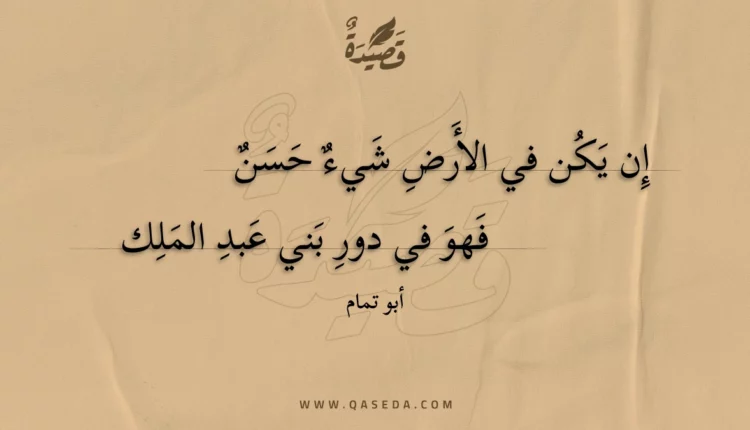 قَصِيْدَةٌ
إِن يَكُن في الأَرضِ شَيءٌ حَسَنٌ
فَهوَ في دورِ بَني عَبدِ المَلِك
أبو تمام
WWW.QASEDA.COM